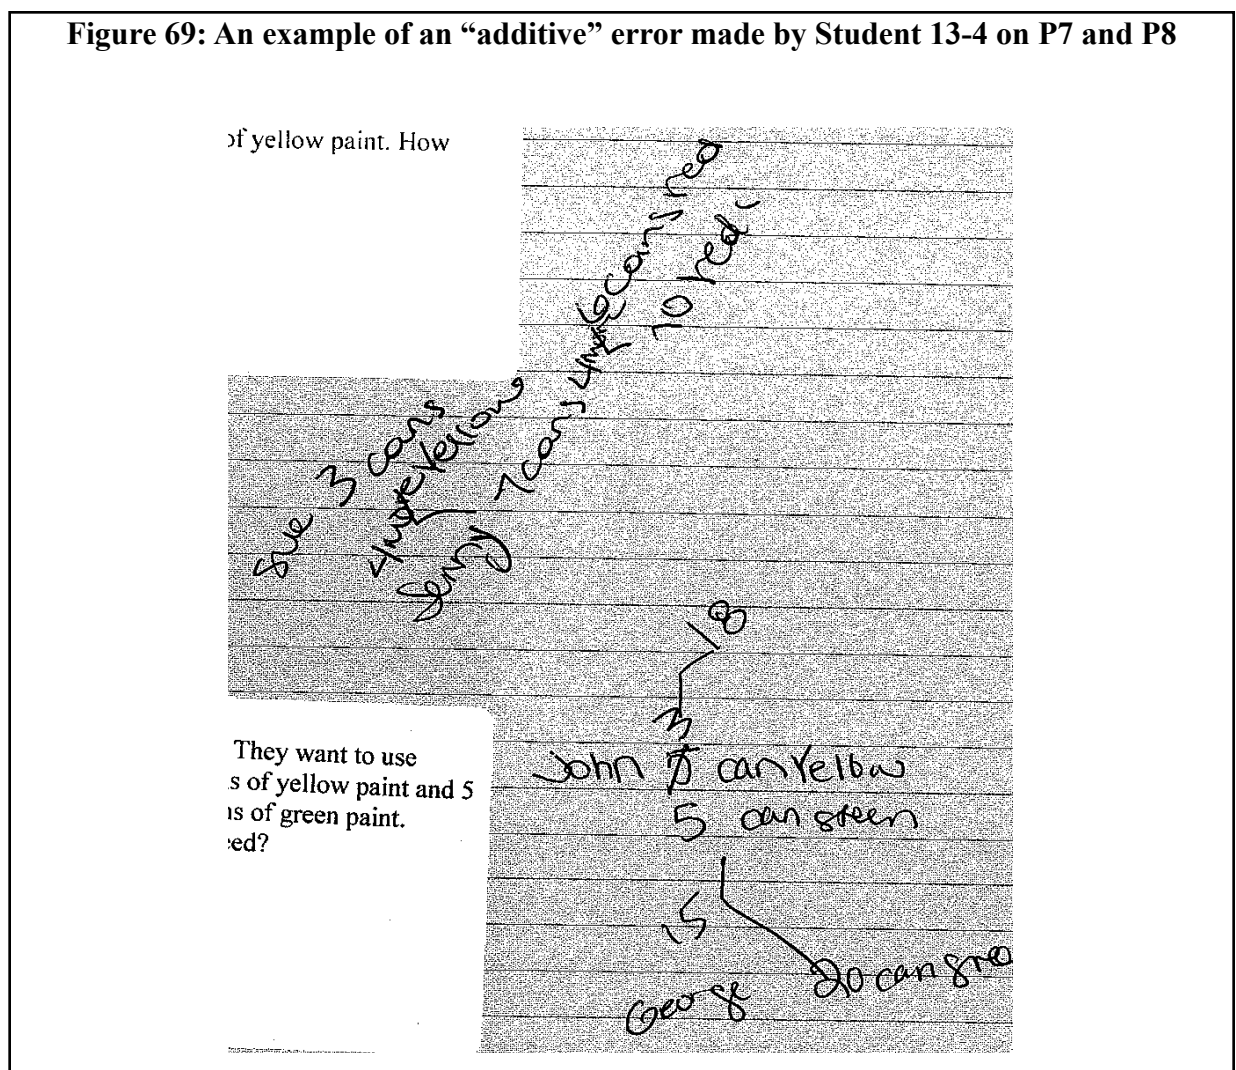 Figure 69: An example of an “additive” error made by Student 13-4 on P7 and P8
of yellow paint. How
Sue 3 cans
4 more yellow
6 cans red
Jenny 7 cans 4 more
10 red
18
3
They want to use
s of yellow paint and 5
ns of green paint.
eed?
John can Yellow
5 can green
15
George
20 can gree